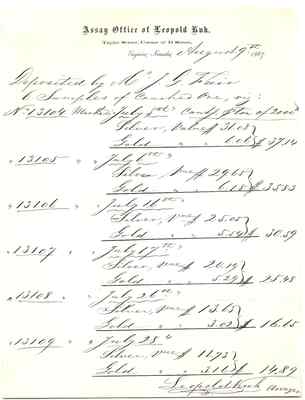 Assay Office of Leopold Kuh.
Taylor Street, Corner of D Street,
Virginia, Nevada, August 9th 1867
Deposited by Mr J. G.
6 Samples of Crushed Ore, viz:
No 13104 Marked July 5th Cont p Ton of 2000
Silver, Value $ 31.08
Gold " " 6.06 } $ 37.14
" 13105 " July 6th "
Silver, Value $ 29.65
Gold " " 6.18 } $ 35.83
" 13106 " July 16th "
Silver, Value $ 25.05
Gold " " 5.54 } $ 30.59
" 13107 " July 17th "
Silver, Value $ 20.19
Gold " " 5.29 } $ 25.48
" 13108 " July 26th "
Silver, Value $ 13.13
Gold " " 3.02 } $ 16.15
" 13109 " July 28th
Silver, Value $ 11.73
Gold " " 3.16 } $ 14.89
Leopold Kuh Assayer